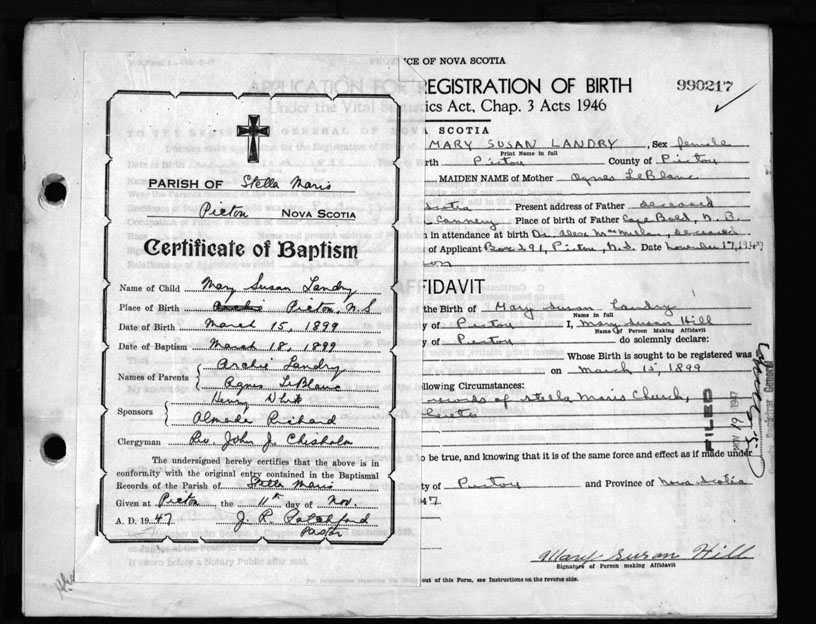 PARISH OF Stella Maris
Picton NOVA SCOTIA
Certificate of Baptism
Name of Child Mary Susan Landry
Place of Birth Picton, N.S
Date of Birth March 15, 1899
Date of Baptism March 18, 1899
Names of Parents Archie Landry
Agnes LeBlanc
Sponsors Henry White
Almeda Richard
Clergyman Rev. John J. Chisholm
The undersigned hereby certifies that the above is in
conformity with the original entry contained in the Baptismal
Records of the Parish of Stella Maris
Given at Picton the 11th day of Nov.
A. D. 1947 J. R.
Pastor
CE OF NOVA SCOTIA
REGISTRATION OF BIRTH
990217
ics Act, Chap. 3 Acts 1946
SCOTIA
MARY SUSAN LANDRY, Sex female
Print Name in full
rth Pictou County of Pictou
MAIDEN NAME of Mother Agnes LeBlanc
Scotia Present address of Father deceased
Cannery Place of birth of Father Cape Bald, N. B.
n in attendance at birth Dr. Alex McMillan, deceased
of Applicant Box 291, Pictou, N.S. Date November 17, 1947
FFIDAVIT
the Birth of Mary Susan Landry
Name in full
y of Pictou I, Mary Susan Hill
Name of Person Making Affidavit
y of Pictou do solemnly declare:
Whose Birth is sought to be registered was
on March 15, 1899
ollowing Circumstances:
records of Stella Maris Church,
FILED
NOV 19 1947
o be true, and knowing that it is of the same force and effect as if made under
ty of Pictou and Province of Nova Scotia
47
Mary Susan Hill
Signature of Person making Affidavit
out of this Form, see Instructions on the reverse side.